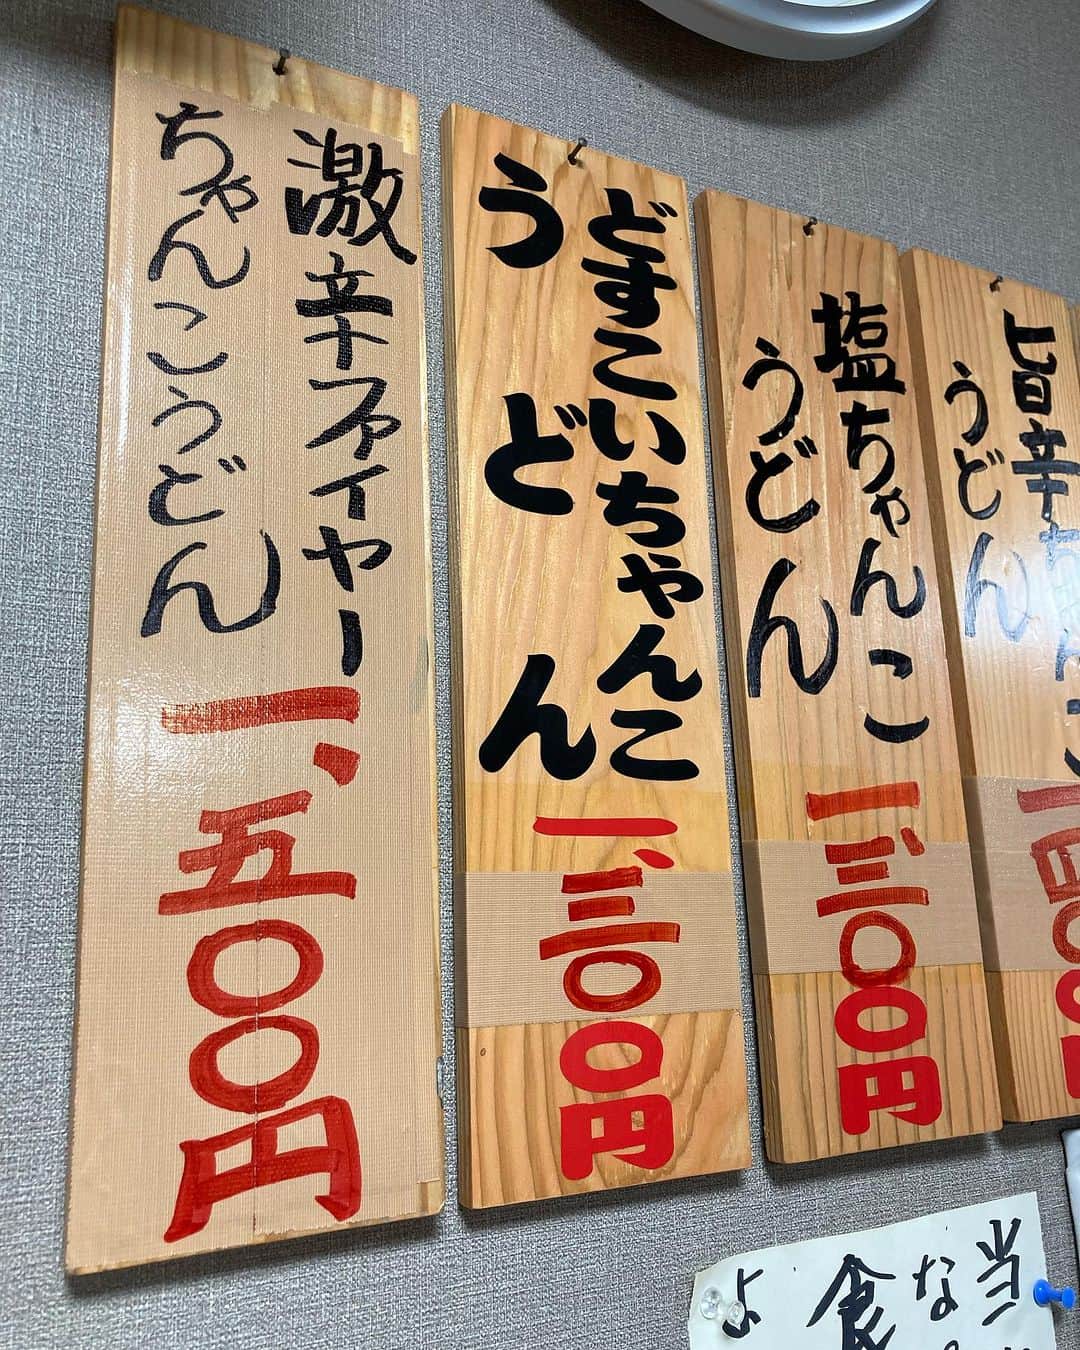 旨辛ちゃんこ
うどん
塩ちゃんこ
うどん
一、三〇〇円
どすこいちゃんこ
うどん
一、三〇〇円
激辛ファイヤー
ちゃんこうどん
一、五〇〇円
当
な
食
よ